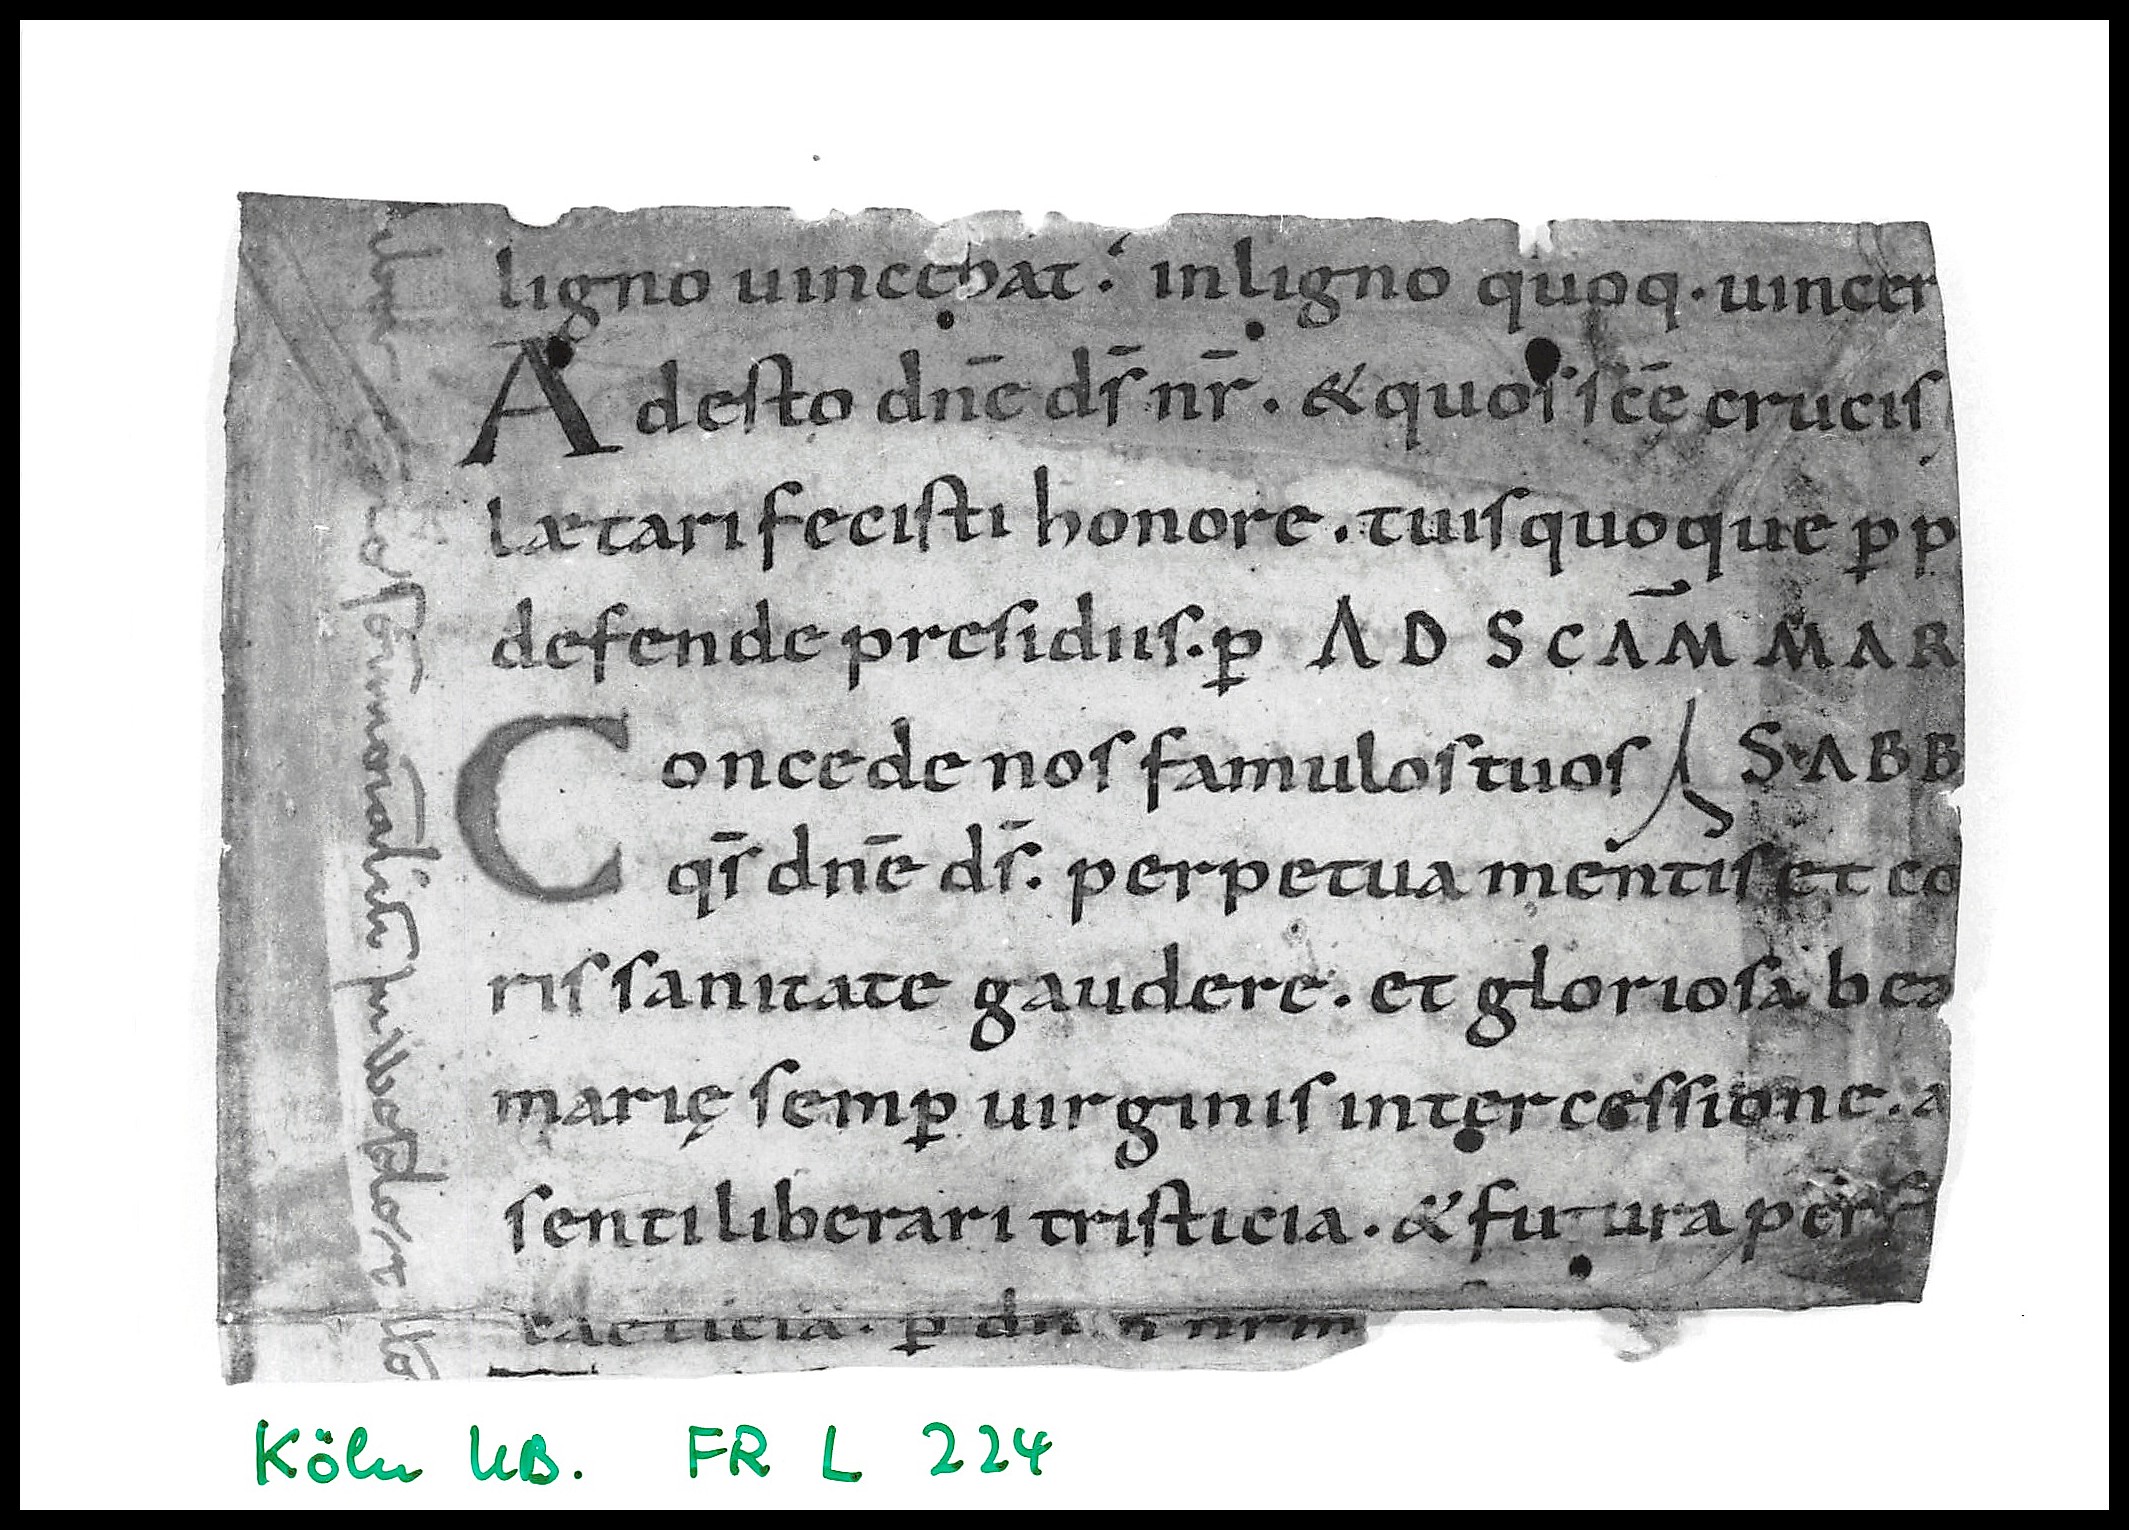 ligno uincebat. in ligno quoq. uincer
Adesto dnē ds̄ nr̄. & quos scē crucis
lætari fecisti honore. tuis quoque ꝑ p
defende presidiis. ꝑ AD SCAM̄ MAR
Concede nos famulos tuos S. ABB
qs̄ dnē ds̄. perpetua mentis et co
ris sanitate gaudere. et gloriosa bea
marię semꝑ uirginis intercessione. a
senti liberari tristicia. & futura per
laeticia. ꝑ dn̄ nrm
Köln UB. FR L 224